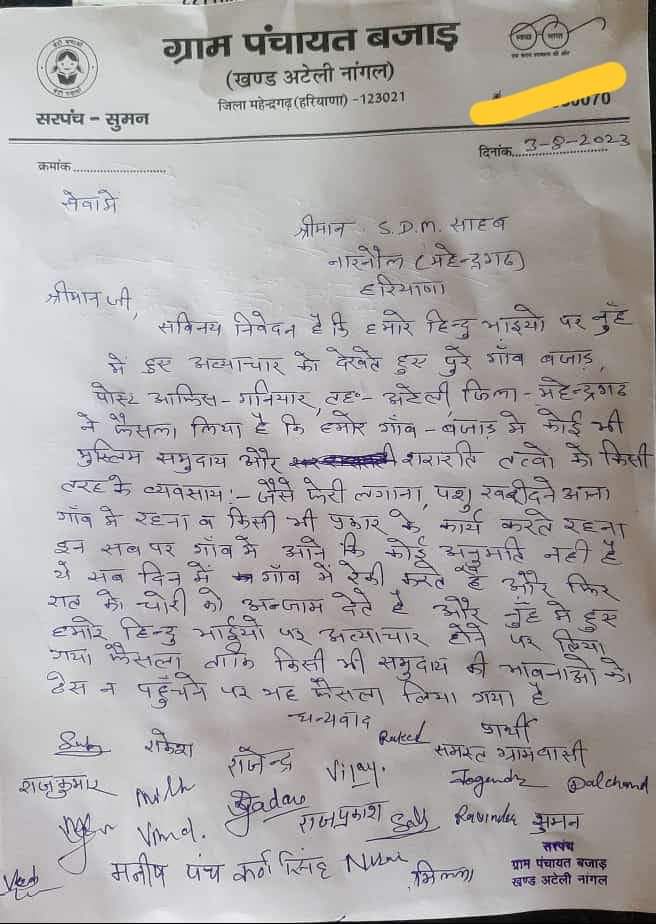 ग्राम पंचायत बजाड़
(खण्ड अटेली नांगल)
जिला महेन्द्रगढ़ (हरियाणा) -123021
सरपंच - सुमन
0070
क्रमांक
दिनांक 3-8-2023
सेवा में
श्रीमान S.D.M. साहब
नारनौल (महेन्द्रगढ)
हरियाणा
श्रीमान जी,
सविनय निवेदन है कि हमारे हिन्दु भाइयो पर नुँह
मे हुए अत्याचार को देखते हुए पुरे गाँव बजाड़,
पोस्ट आफिस - गनियार, तह॰- अटेली, जिला - महेन्द्रगढ
ने फैसला लिया है कि हमारे गाँव - बजाड़ मे कोई भी
मुस्लिम समुदाय और शरारति तत्वो को किसी
तरह के व्यवसाय :- जैसे फेरी लगाना, पशु खरीदने आना
गाँव मे रहना व किसी भी प्रकार के कार्य करते रहना
इन सब पर गाँव मे आने कि कोई अनुमति नही है
ये सब दिन में गाँव में रेकी करते है और फिर
रात को चोरी को अन्जाम देते है और नुँह मे हुए
हमारे हिन्दु भाईयो पर अत्याचार होने पर लिया
गया फैसला ताकि किसी भी समुदाय की भावनाओ को
ठेस न पहुँचने पर यह फैसला लिया गया है
धन्यवाद
प्रार्थी
समस्त ग्रामवासी
राकेश राजेन्द्र Vijay.
राजकुमार Yadav Dalchand
Vinod. राजप्रकाश Ravinder सुमन
मनीष पंच कर्ण सिंह
सरपंच
ग्राम पंचायत बजाड़
खण्ड अटेली नांगल